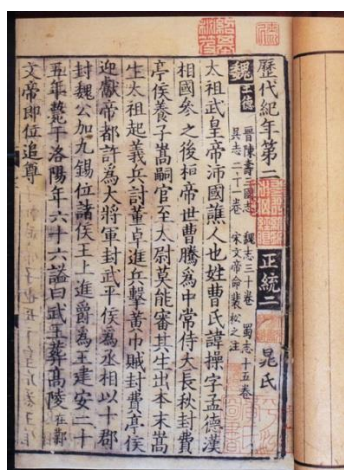 歷代紀年第二 正統二 晁氏
魏 土德 晉陳壽三國志 魏志三十卷 蜀志十五卷
吳志二十一卷 宋文帝命裴松之注
太祖武皇帝沛國譙人也姓曹氏諱操字孟德漢
相國參之後桓帝世曹騰為中常侍大長秋封費
亭侯養子嵩嗣官至太尉莫能審其生出本末嵩
生太祖起義兵討董卓進兵擊黃巾賊封費亭侯
迎獻帝都許為大將軍封武平侯為丞相以十郡
封魏公加九錫位諸侯王上進爵為王建安二十
五年薨于洛陽年六十六謚曰武王葬髙陵在鄴
文帝即位追尊